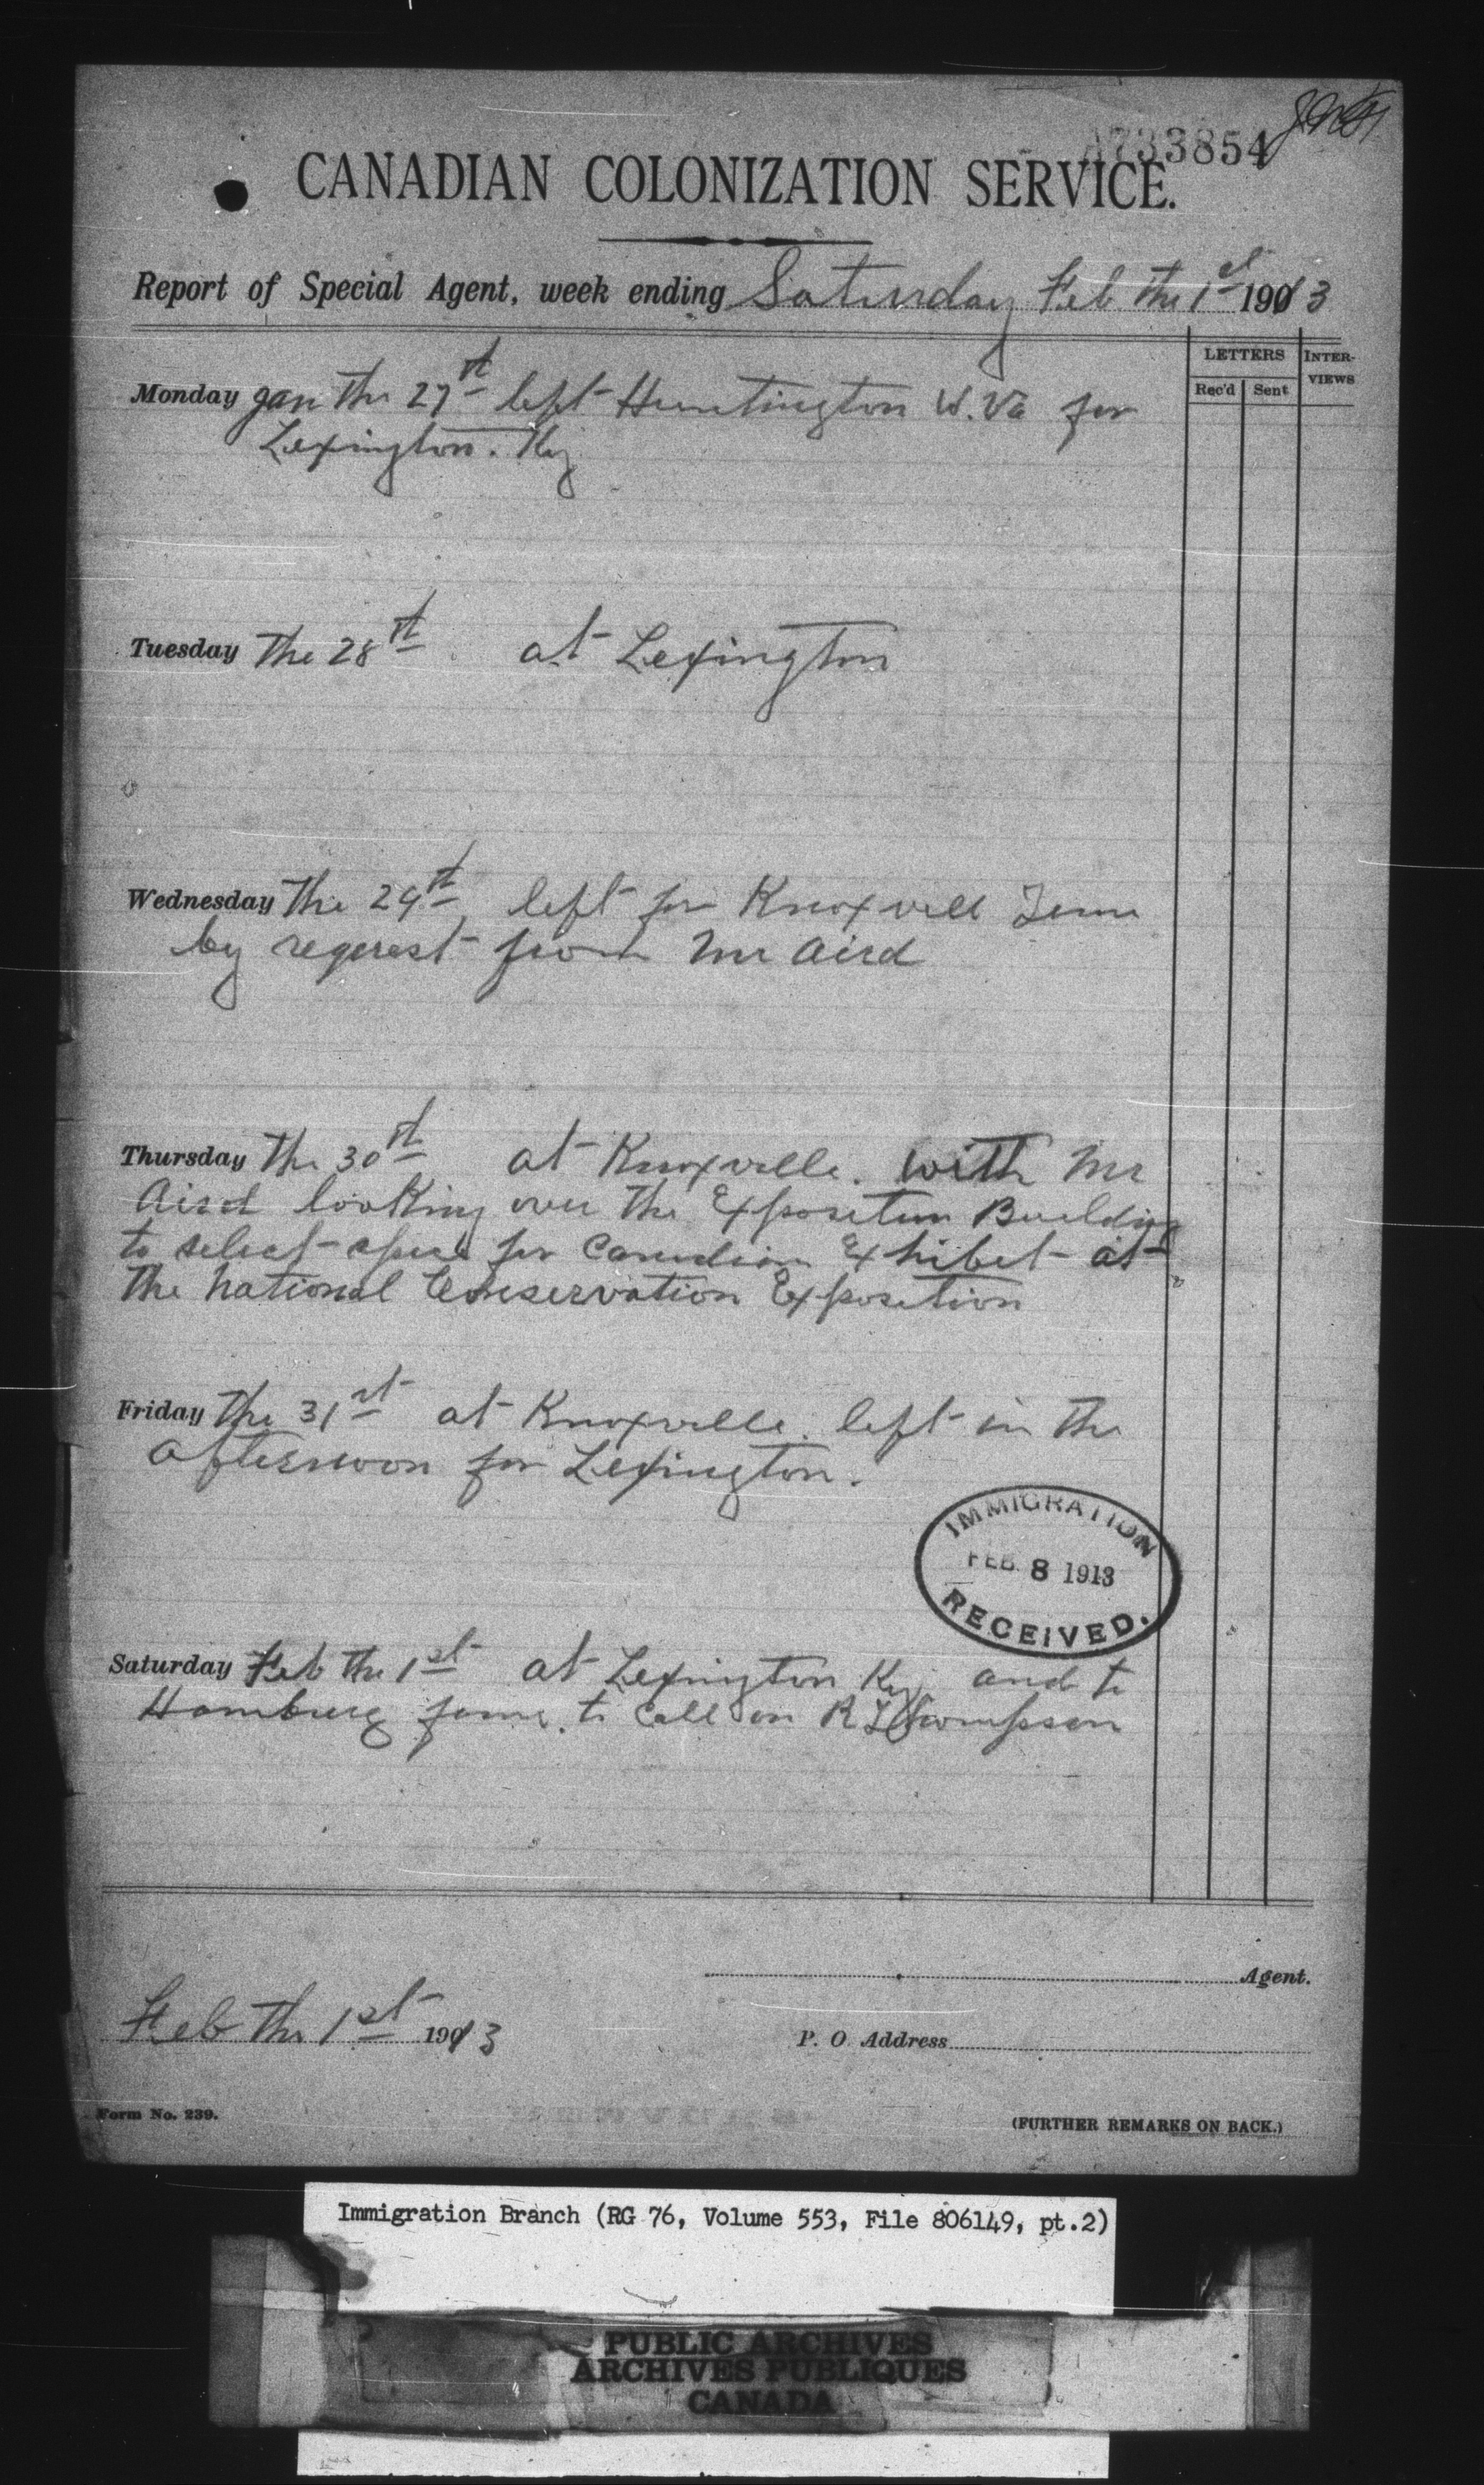 733854
CANADIAN COLONIZATION SERVICE.
Report of Special Agent, week ending Saturday Feb the 1st 1913
LETTERS
INTER-
VIEWS
Rec'd Sent
Monday Jan the 27st left Huntington W.Va for
Lexington. Ky
Tuesday the 28st at Lexington
Wednesday the 29st left for Knoxvill Tenn
by request from Mr Aird
Thursday the 30st at Knoxville. with Mr
Aird looking over the Exposition Building
to select space for Canadian Exhibit at
the National Conservation Exposition
Friday the 31st at Knoxville. left in the
afternoon for Lexington.
IMMIGRATION
FEB. 8 1913
RECEIVED.
Saturday Feb the 1st at Lexington Ky and to
Hamburg to call on R Thompson
Agent.
Feb the 1st 1913
P. O. Address
Form No. 239.
(FURTHER REMARKS ON BACK.)
Immigration Branch (RG 76, Volume 553, File 806149, pt.2)
PUBLIC ARCHIVES
ARCHIVES PUBLIQUES
CANADA